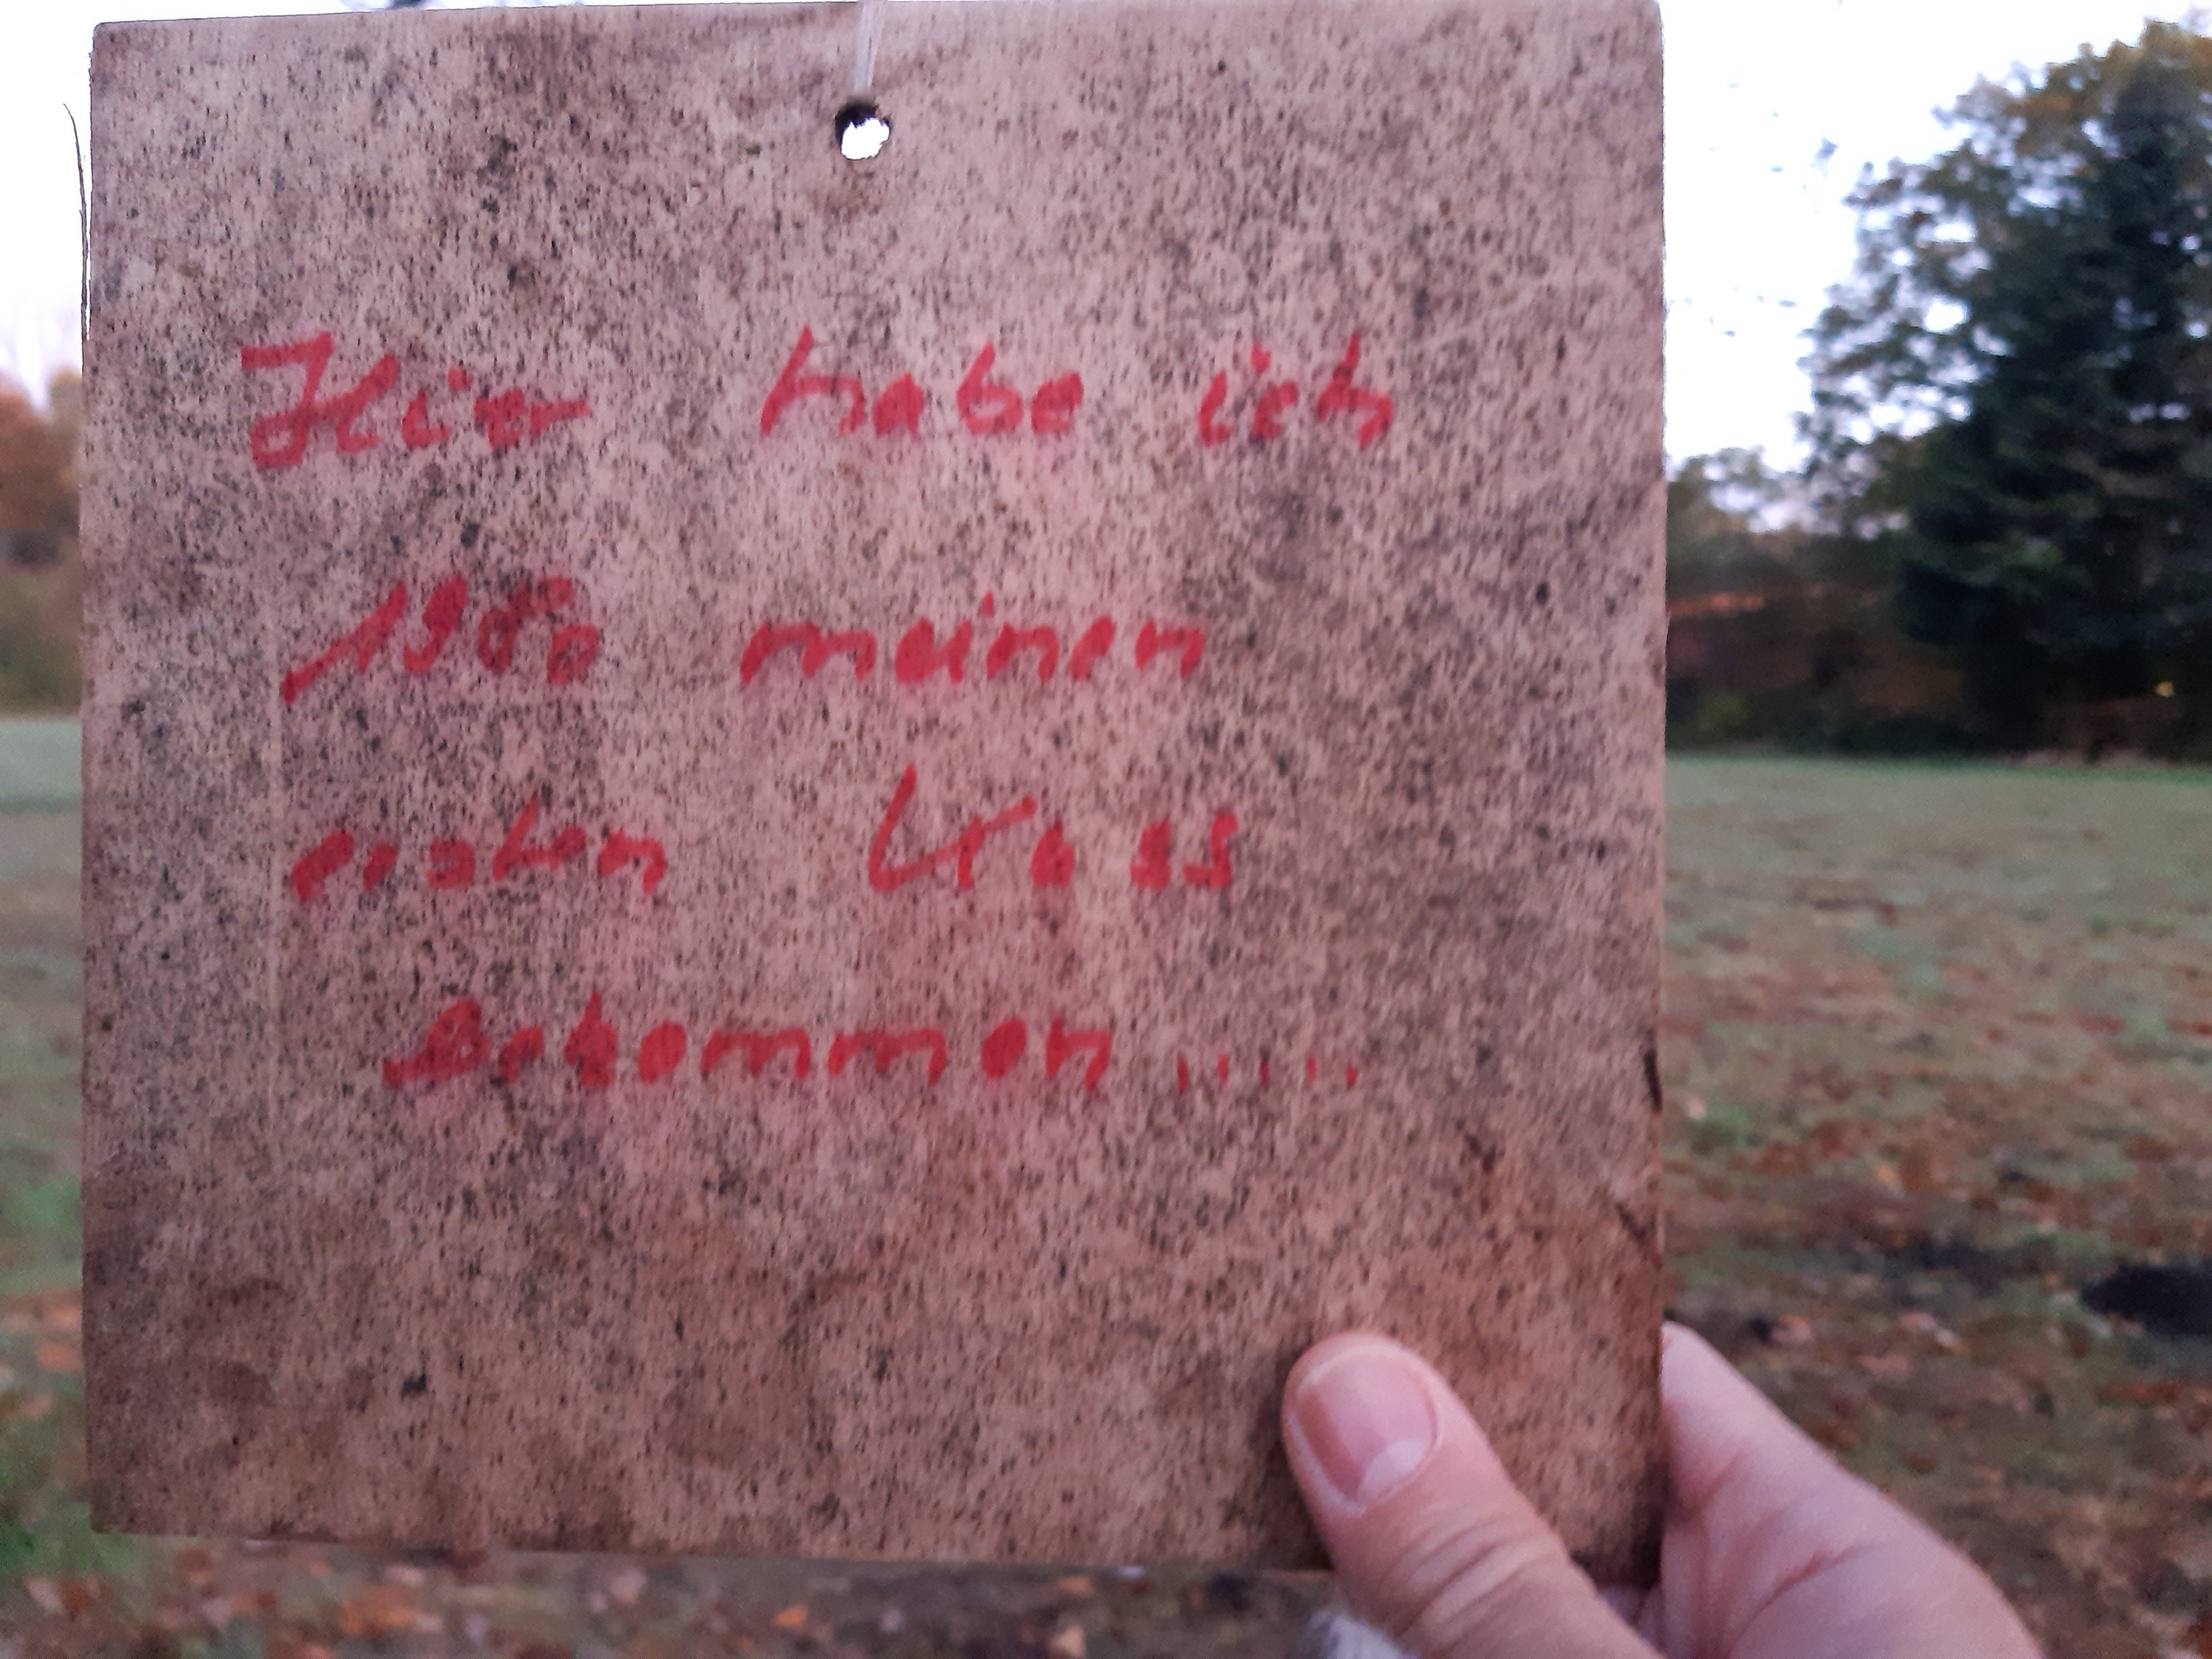 Hier habe ich
1980 meinen
ersten Kuss
bekommen.....